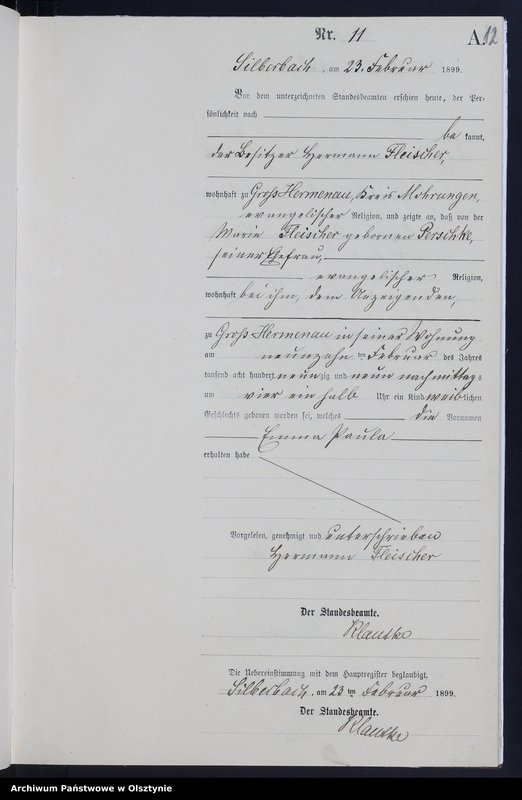 Nr. 11
A. 12
Silberbach, am 23. Februar 1899.
Vor dem unterzeichneten Standesbeamten erschien heute, der Per-
sönlichkeit nach
be kannt,
der Besitzer Hermann Fleischer,
wohnhaft zu Groß Hermenau, Kreis Mohrungen,
evangelischer Religion, und zeigte an, daß von der
Marie Fleischer gebornen Perschke,
seiner Ehefrau,
evangelischer Religion,
wohnhaft bei ihm, dem Anzeigenden,
zu Groß Hermenau in seiner Wohnung
am neunzehn ten Februar des Jahres
tausend acht hundert neunzig und neun nachmittags
um vier ein halb Uhr ein Kind weiblichen
Geschlechts geboren worden sei, welches die Vornamen
Emma Paula
erhalten habe
Vorgelesen, genehmigt und unterschrieben
Hermann Fleischer
Der Standesbeamte.
Klautke
Die Uebereinstimmung mit dem Hauptregister beglaubigt.
Silberbach, am 23 ten Februar 1899.
Der Standesbeamte.
Klautke
Archiwum Państwowe w Olsztynie